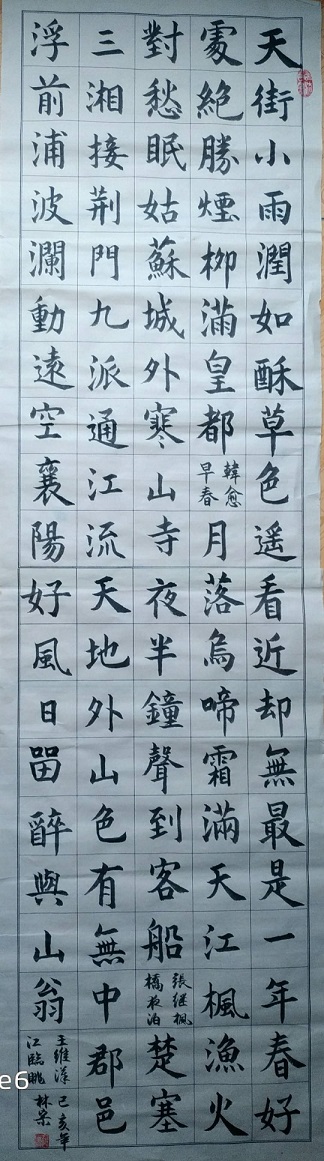 天街小雨潤如酥草色遥看近却無最是一年春好
處絕勝煙柳滿皇都
韓愈
早春
月落烏啼霜滿天江楓漁火
對愁眠姑蘇城外寒山寺夜半鐘聲到客船
張继楓
橋夜泊
楚塞
三湘接荆門九派通江流天地外山色有無中郡邑
浮前浦波瀾動遠空襄陽好風日留醉與山翁
王維漢
江臨眺
己亥年
林
e6